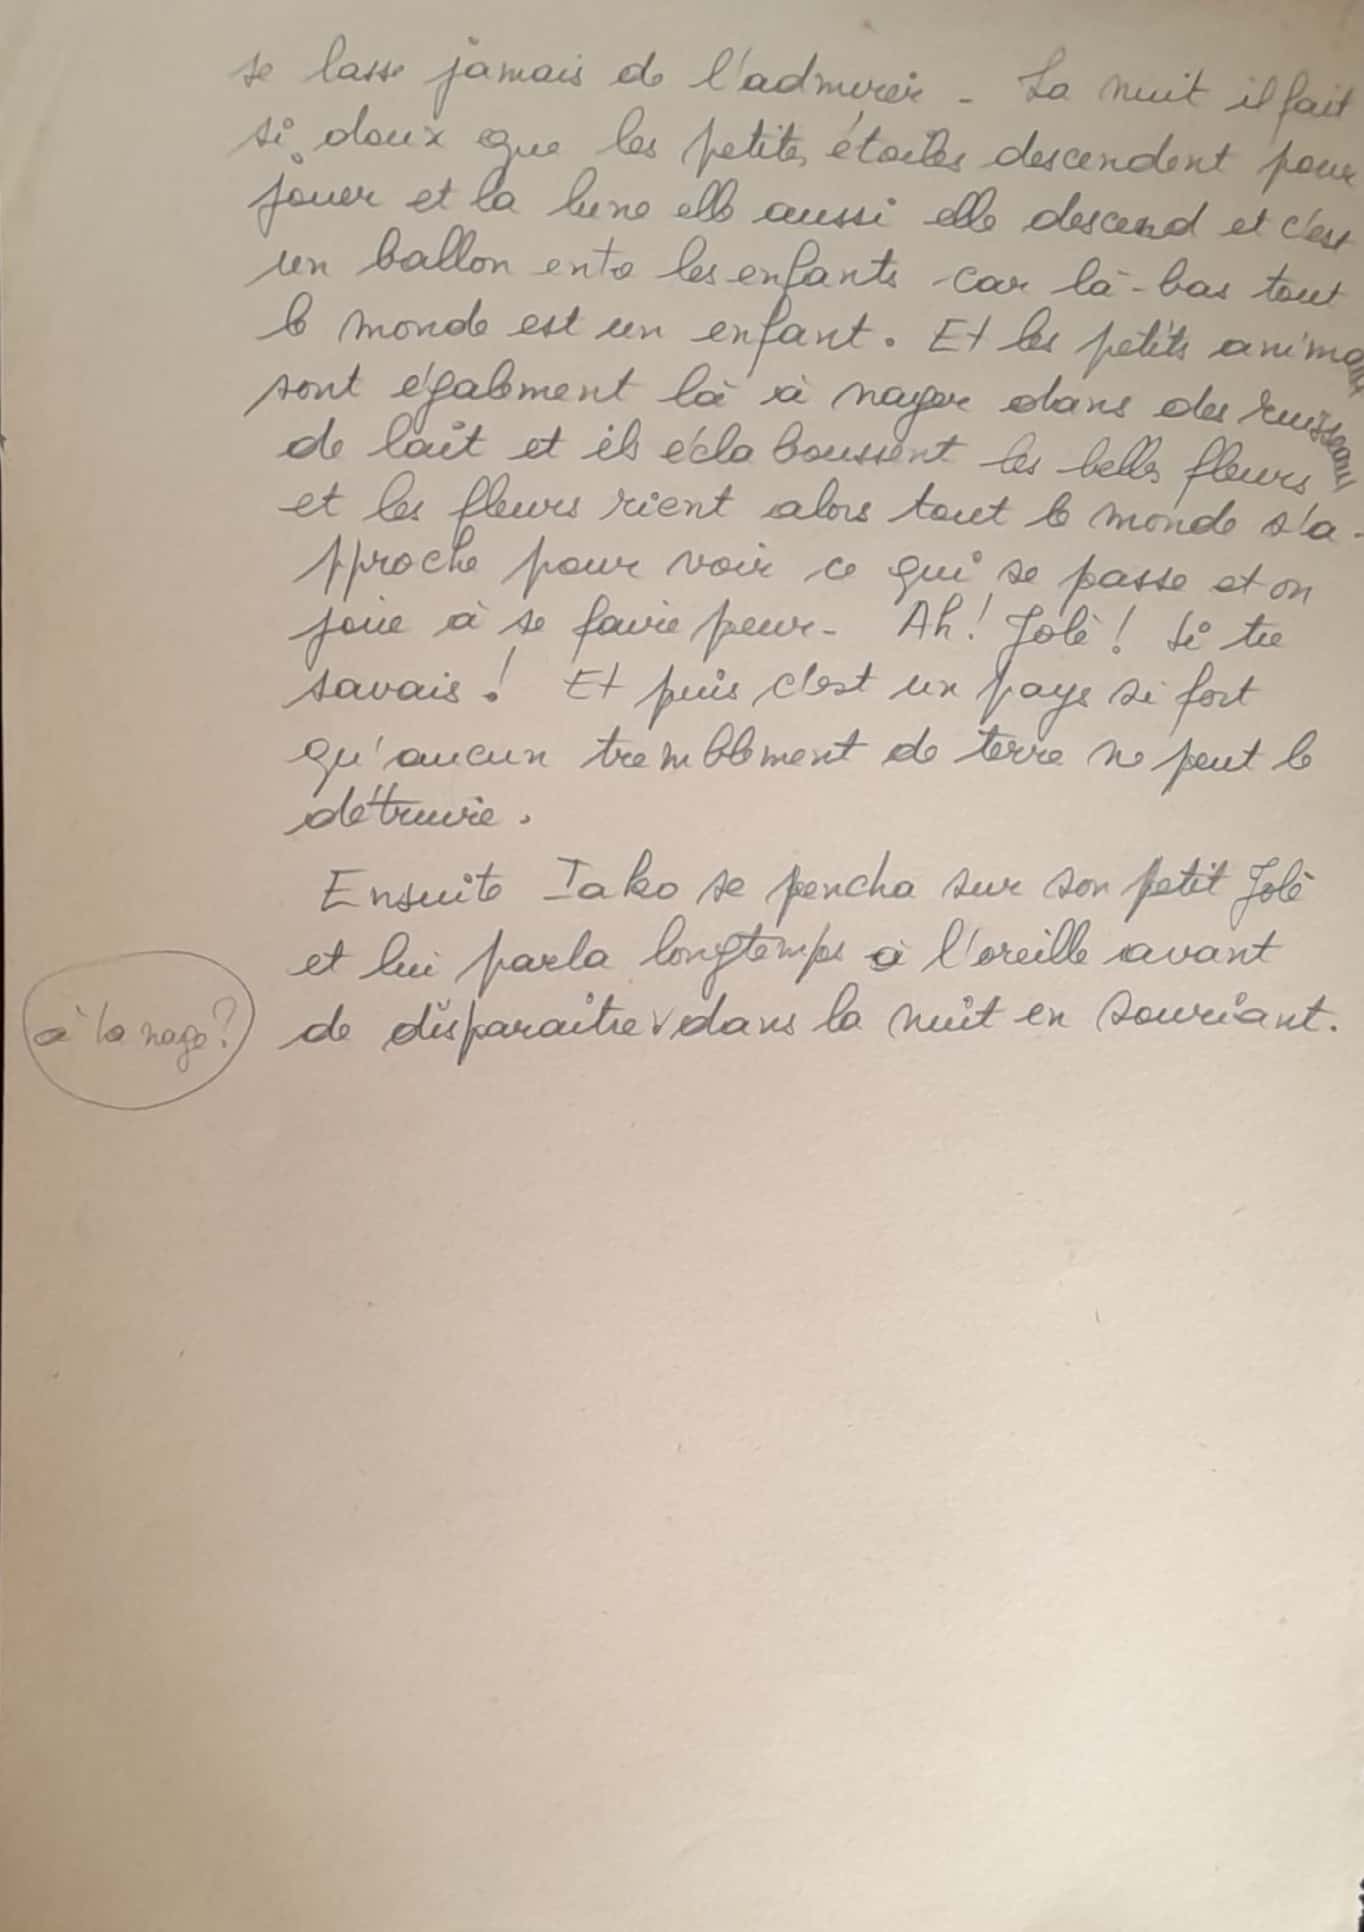 se lasse jamais de l'admirer - La nuit il fait
si doux que les petites étoiles descendent pour
jouer et la lune elle aussi elle descend et c'est
un ballon ente les enfants car là-bas tout
le monde est un enfant. Et les petits animaux
sont également là à nager dans des ruisseaux
de lait et ils éclaboussent les belles fleurs
et les fleurs rient alors tout le monde s'a-
pproche pour voir ce qui se passe et on
joue à se faire peur - Ah! Jolè! Si tu
savais! Et puis c'est un pays si fort
qu'aucun tremblement de terre ne peut le
détruire.
Ensuite Iako se pencha sur son petit Jolè
et lui parla longtemps à l'oreille avant
de disparaître v dans la nuit en souriant.
à la nage?